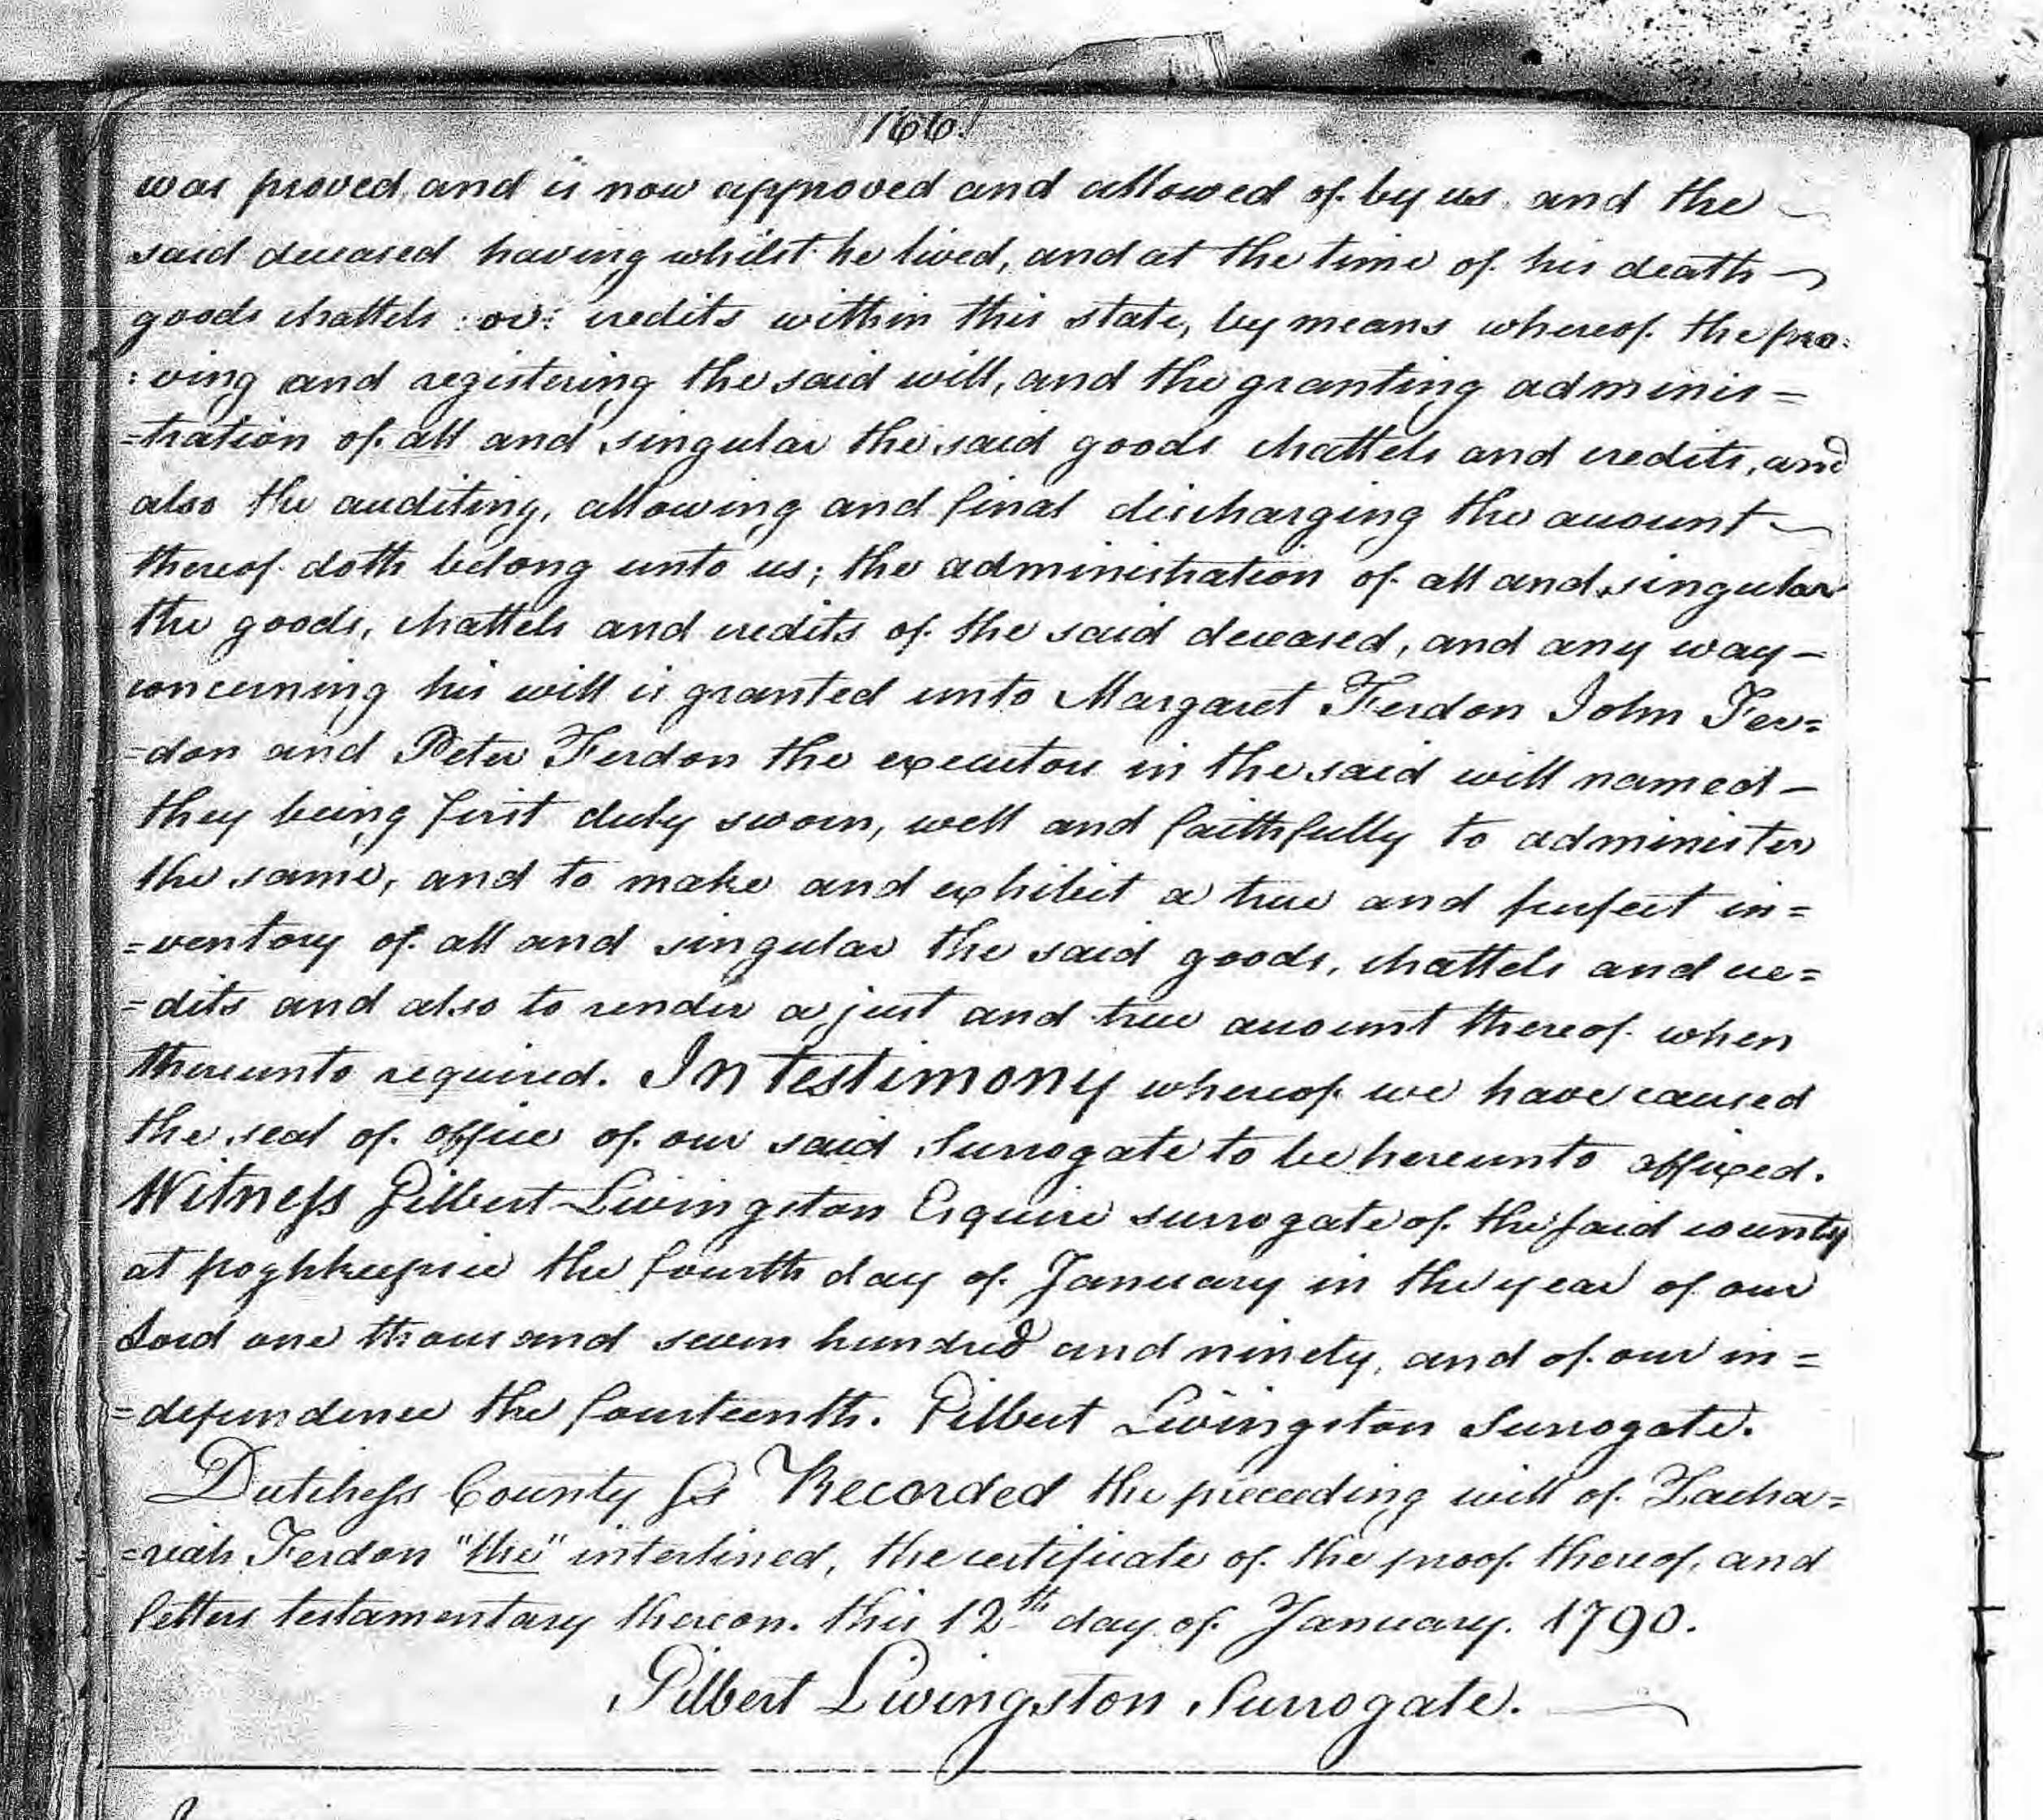 166.
was proved, and is now approved and allowed of by us, and the
said deceased having whilst he lived, and at the time of his death
goods chattels or credits within this state, by means whereof the pro:
:ving and registering the said will, and the granting adminis=
=tration of all and singular the said goods chattels and credits, and
also the auditing, allowing and final discharging the account
thereof doth belong unto us; the administration of all and singular
the goods, chattels and credits of the said deceased, and any way
concerning his will is granted unto Margaret Ferdon John Fer=
=don and Peter Ferdon the executors in the said will named
they being first duly sworn, well and faithfully to administer
the same, and to make and exhibit a true and perfect in=
=ventory of all and singular the said goods, chattels and cre=
=dits and also to render a just and true account thereof when
thereunto required. In Testimony whereof we have caused
the seal of office of our said Surrogate to be hereunto affixed.
Witness Gilbert Livingston Esquire surrogate of the said county
at poghkeepsie the fourth day of January in the year of our
Lord one thousand seven hundred and ninety, and of our in=
=dependence the fourteenth. Gilbert Livingston Surrogate.
Dutchess County Ss Recorded the preceeding will of Zacha=
=riah Ferdon "the" interlined, the certificate of the proof thereof, and
letters testamentary thereon. this 12th day of January. 1790.
Gilbert Livingston Surrogate.